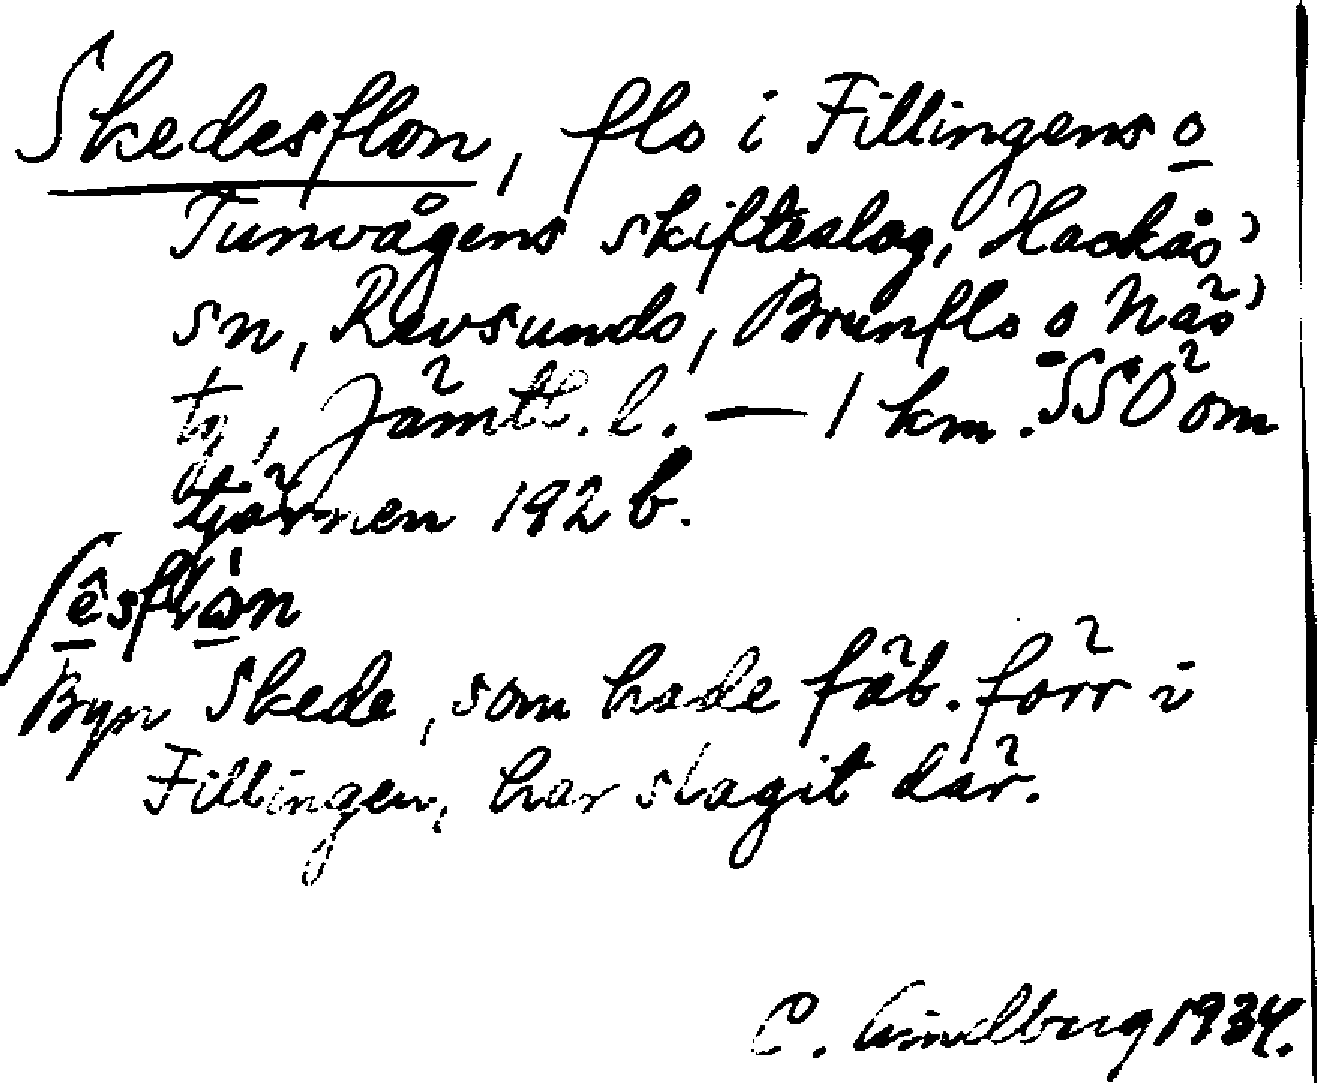 Skedesflon, flo i Fillingens o
Tunvågens skifteslag, Hackås
sn, Revsunds, Brunflo o Näs
tg, Jämtl. l. — 1 km. SSO om
tjärnen 192 b.
ʃêsflòn
Byn Skede, som hade fäb. förr i
Fillingen, har slagit där.
C. Lindberg 1934.